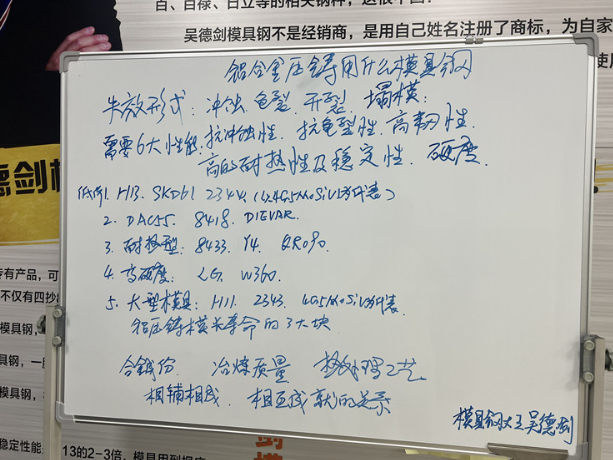 百、百禄、日立等的相关钢种
吴德剑模具钢不是经销商，是用自己姓名注册了商标，为自家
铝合金压铸用什么模具钢
失效形式：冲蚀、龟裂、开裂、塌模．
需要6大性能、抗冲蚀性、抗龟裂性、高韧性、
高的耐热性及稳定性、硬度、
1. H13. SKD61. 2344.
2. DAC55. 8418. DIEVAR.
3. 耐热型：8433. Y4. QRO90.
4. 高硬度：LG. W360.
5. 大型模具：H11. 2343.
铝压铸模具寿命的3大块
合金成份 冶炼质量 热处理工艺
相辅相成、相互成就的关系
模具钢大王吴德剑
德剑模
专有产品，可
不仅有四抄
模具钢，
模具钢，
稳定性能
13的2-3倍，模具用到报废